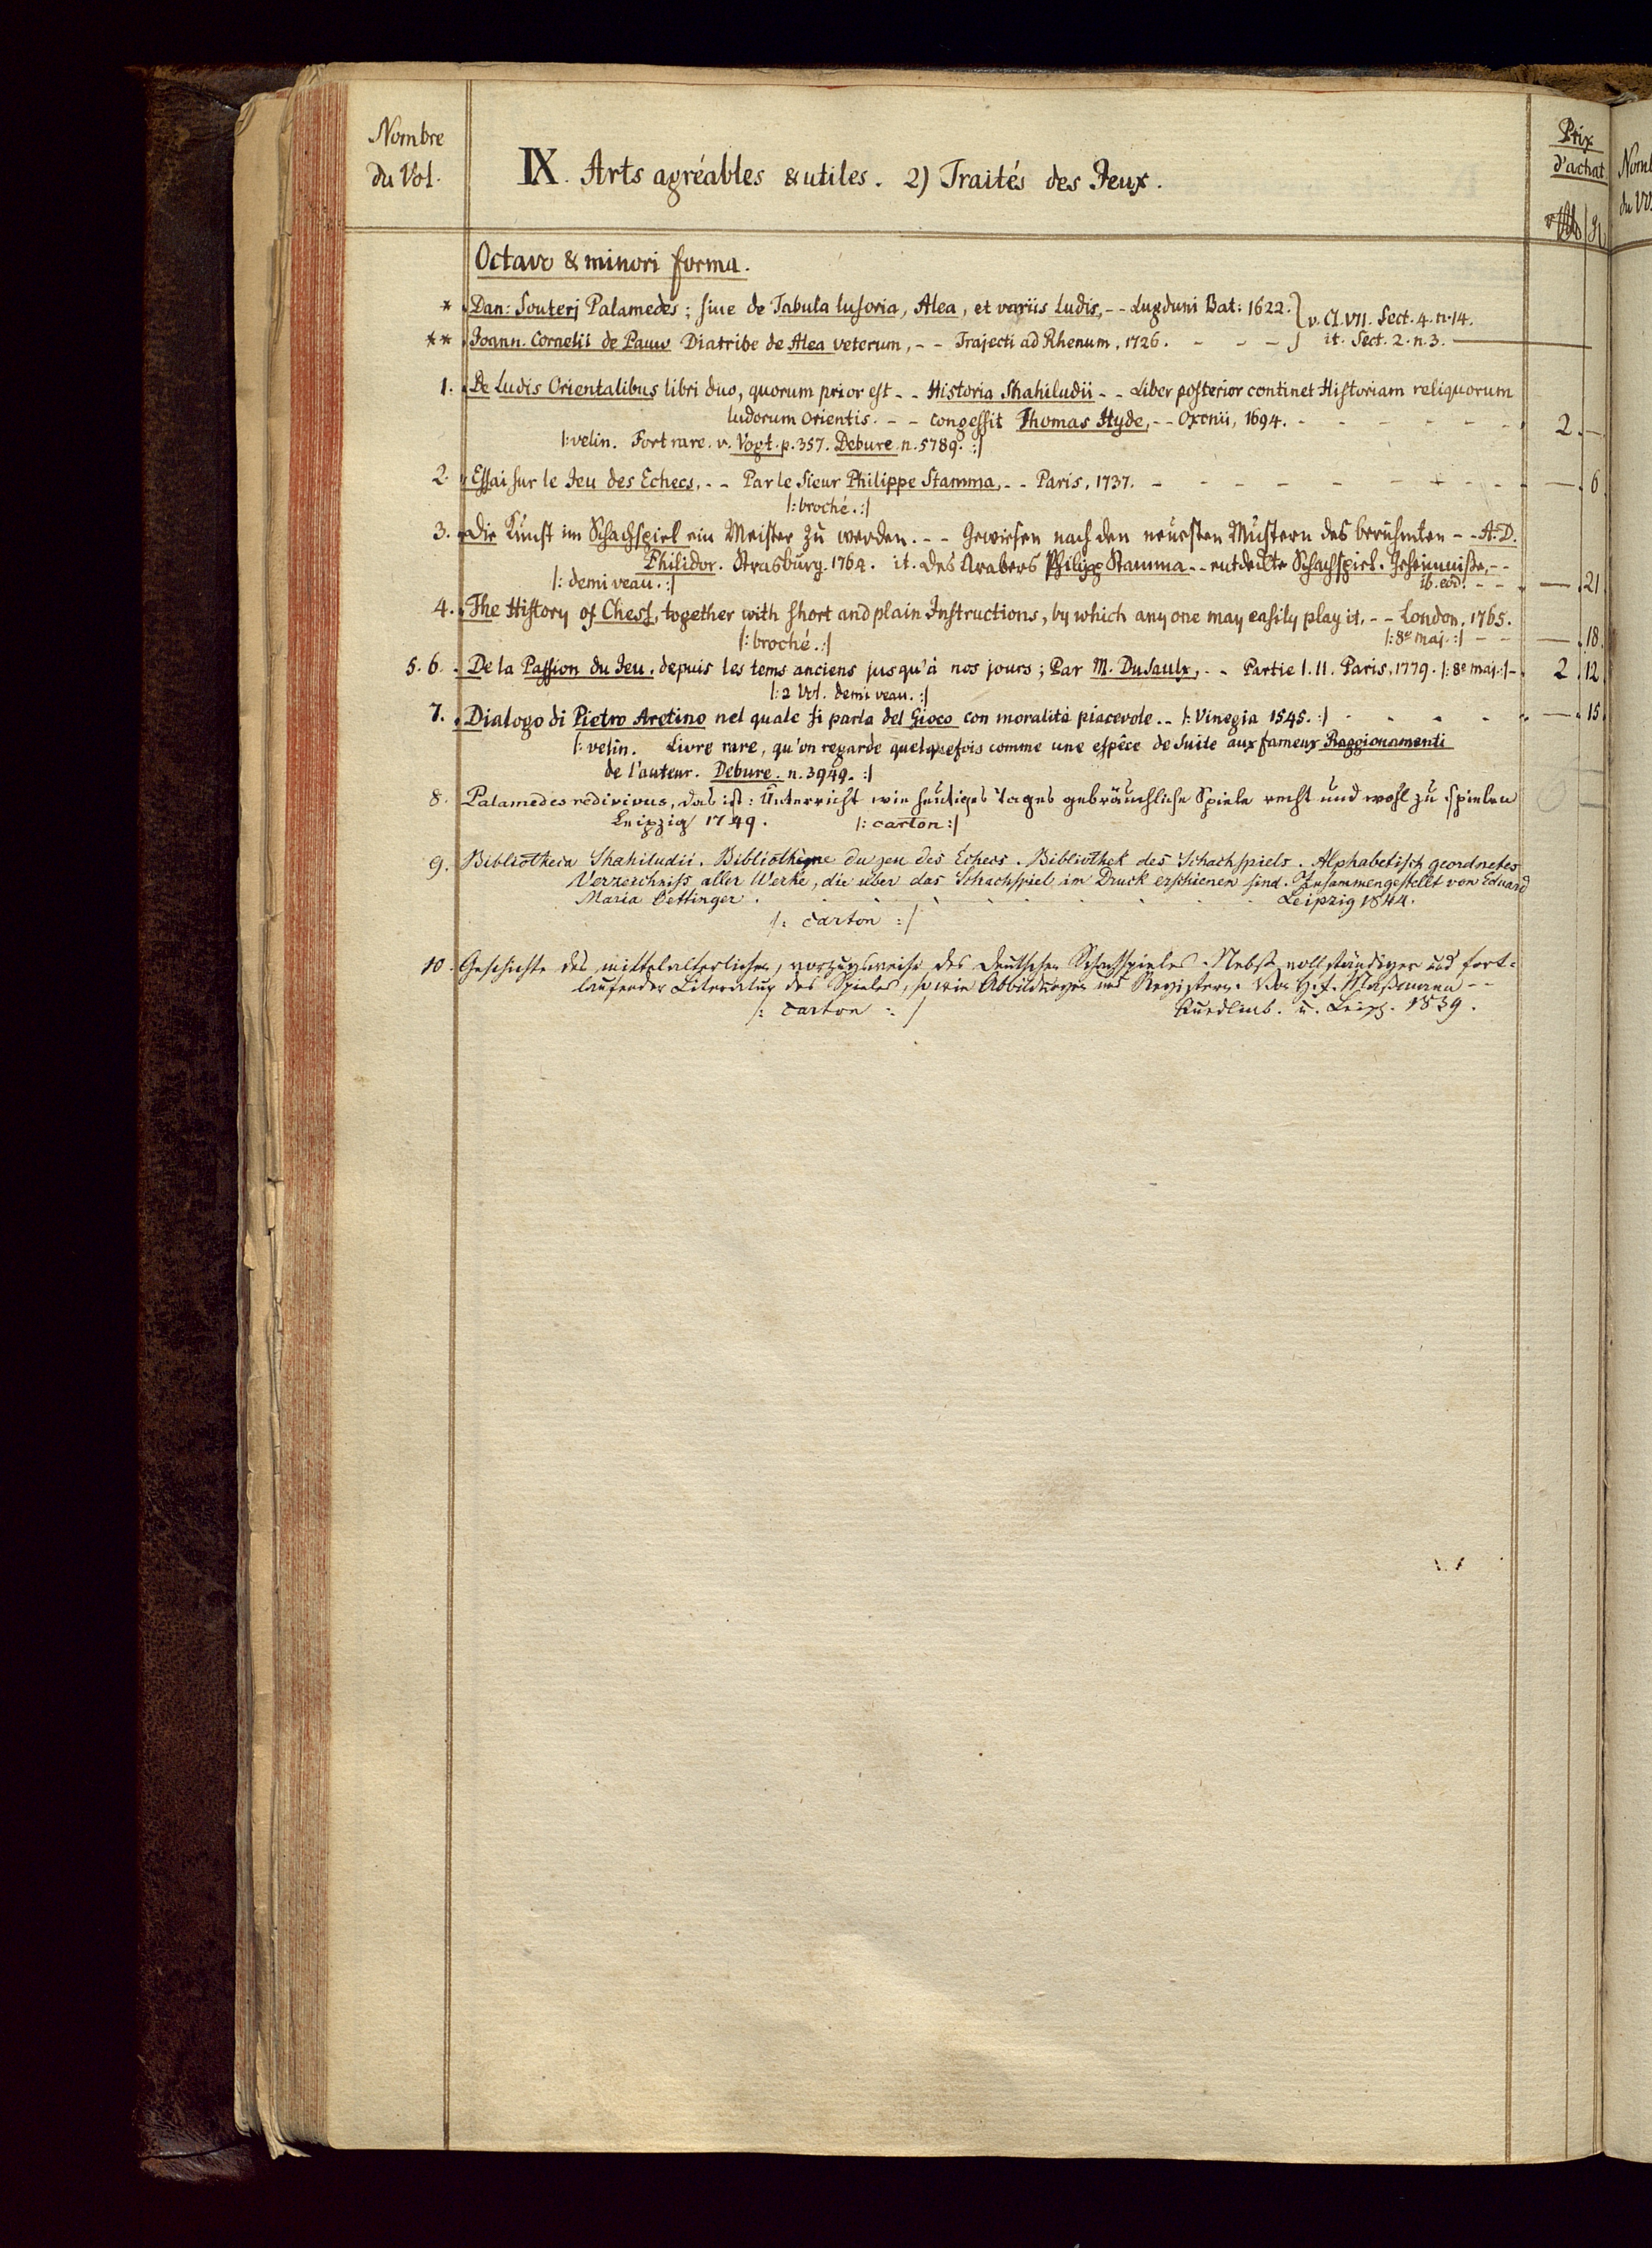 Nombre
du Vol.
IX. Arts agréables & utiles. 2) Traités des Jeux.
Prix
d'achat
Octavo & minori forma.
* Dan: Souterj Palamedes; siue de Tabula lusoria, Alea, et variis Ludis, - - Lugduni Bat: 1622. } v. Cl. VII. Sect. 4. n. 14.
** Joann. Cornelii de Pauw Diatribe de Alea veterum, - - Trajecti ad Rhenum, 1726. - - - } it. Sect. 2. n. 3. —
1. De Ludis Orientalibus libri duo, quorum prior est - - Historia Shahiludii - - Liber posterior continet Historiam reliquorum
ludorum Orientis. - - congessit Thomas Hyde, - - Oxonii, 1694. - - - - - - 2. —
|: velin. Fort rare. v. Vogt. p. 357. Debure. n. 5789. :|
2. Essai sur le Jeu des Echecs, - - Par le Sieur Philippe Stamma, - - Paris, 1737. - - - - - - - — . 6
|: broché. :|
3. Die Kunst im Schachspiel ein Meister zu werden. - - - Gewiesen nach den neuesten Mustern des berühmten - - A. D.
Philidor. Strasburg. 1764. it. des Arabers Philipp Stamma - - entdeckte Schachspiel-Geheimniße, - -
|: demi veau. :| ib. eod. - - — . 21
4. The History of Chess, together with short and plain Instructions, by which any one may easily play it, - - London, 1765.
|: broché. :| |: 8º maj. :| - - — . 18
5. 6. De la Passion du Jeu, depuis les tems anciens jusqu'à nos jours; Par M. Dusaulx, - - Partie I. II. Paris, 1779. |: 8º maj. :| - 2 . 12
|: 2 Vol. demi veau. :|
7. Dialogo di Pietro Aretino nel quale si parla del Gioco con moralità piacevole. - - |: Vinegia 1545. :| - - - - - — . 15
|: velin. Livre rare, qu'on regarde quelquefois comme une espéce de Suite aux fameux Raggionamenti
de l'auteur. Debure. n. 3949. :|
8. Palamedes redivivus, das ist: Unterricht wie heutiges Tages gebräuchliche Spiele recht und wohl zu spielen
Leipzig 1749. |: carton :|
9. Bibliotheca Shahiludii. Bibliothèque du jeu des Échecs. Bibliothek des Schachspiels. Alphabetisch geordnetes
Verzeichniss aller Werke, die über das Schachspiel im Druck erschienen sind. Zusammengestellt von Eduard
Maria Oettinger . . . . . . . . . . . Leipzig 1844.
|: carton :|
10. Geschichte des mittelalterlichen, vorzugsweise des Deutschen Schachspieles. Nebst vollständiger und fort-
laufender Literatur des Spieles, so wie Abbildungen und Registern. Von H. F. Maßmann - -
|: carton :| Quedlinb. u. Leipz. 1839.
Nomb
du Vo